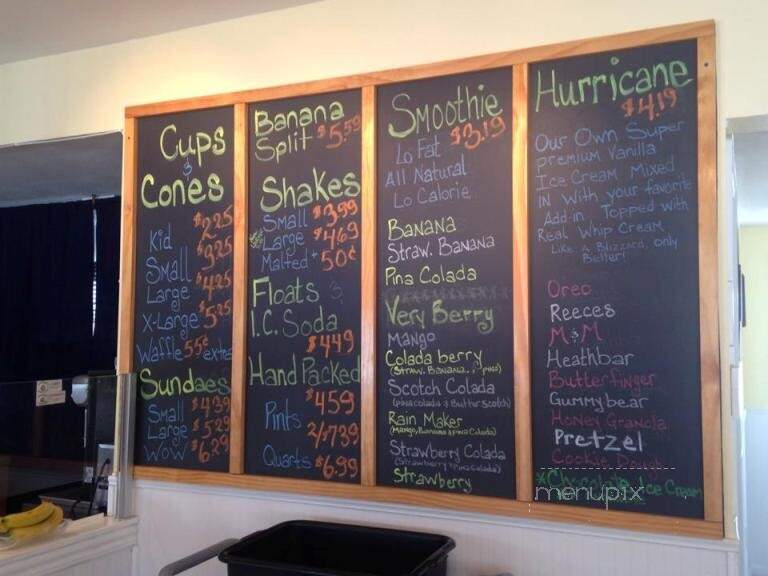 Cups
&
Cones
Kid $2.25
Small $3.25
Large $4.25
X-Large $5.25
Waffle 55¢ extra
Sundaes
Small $4.39
Large $5.29
WOW $6.29
Banana
Split $5.59
Shakes
Small $3.99
Large $4.69
Malted + 50¢
Floats &
I.C. Soda
$4.49
Hand Packed
Pints $4.59
2/$7.39
Quarts $6.99
Smoothie
$3.19
Lo Fat
All Natural
Lo Calorie
Banana
Straw. Banana
Pina Colada
Very Berry
Mango
Colada berry
(Straw. Banana.
Scotch Colada
(pina colada & Butterscotch)
Rain Maker
(Mango, Banana & Pina Colada)
Strawberry Colada
(Strawberry & Pina Colada)
Strawberry
Hurricane
$4.19
Our Own Super
premium Vanilla
Ice Cream Mixed
in With your favorite
Add-in. Topped with
Real Whip Cream.
Like A Blizzard, only
Better!
Oreo
Reeces
M & M
Heathbar
Butterfinger
Gummybear
Honey Granola
Pretzel
Cookie Dough
x Chocolate Ice Cream
menupix